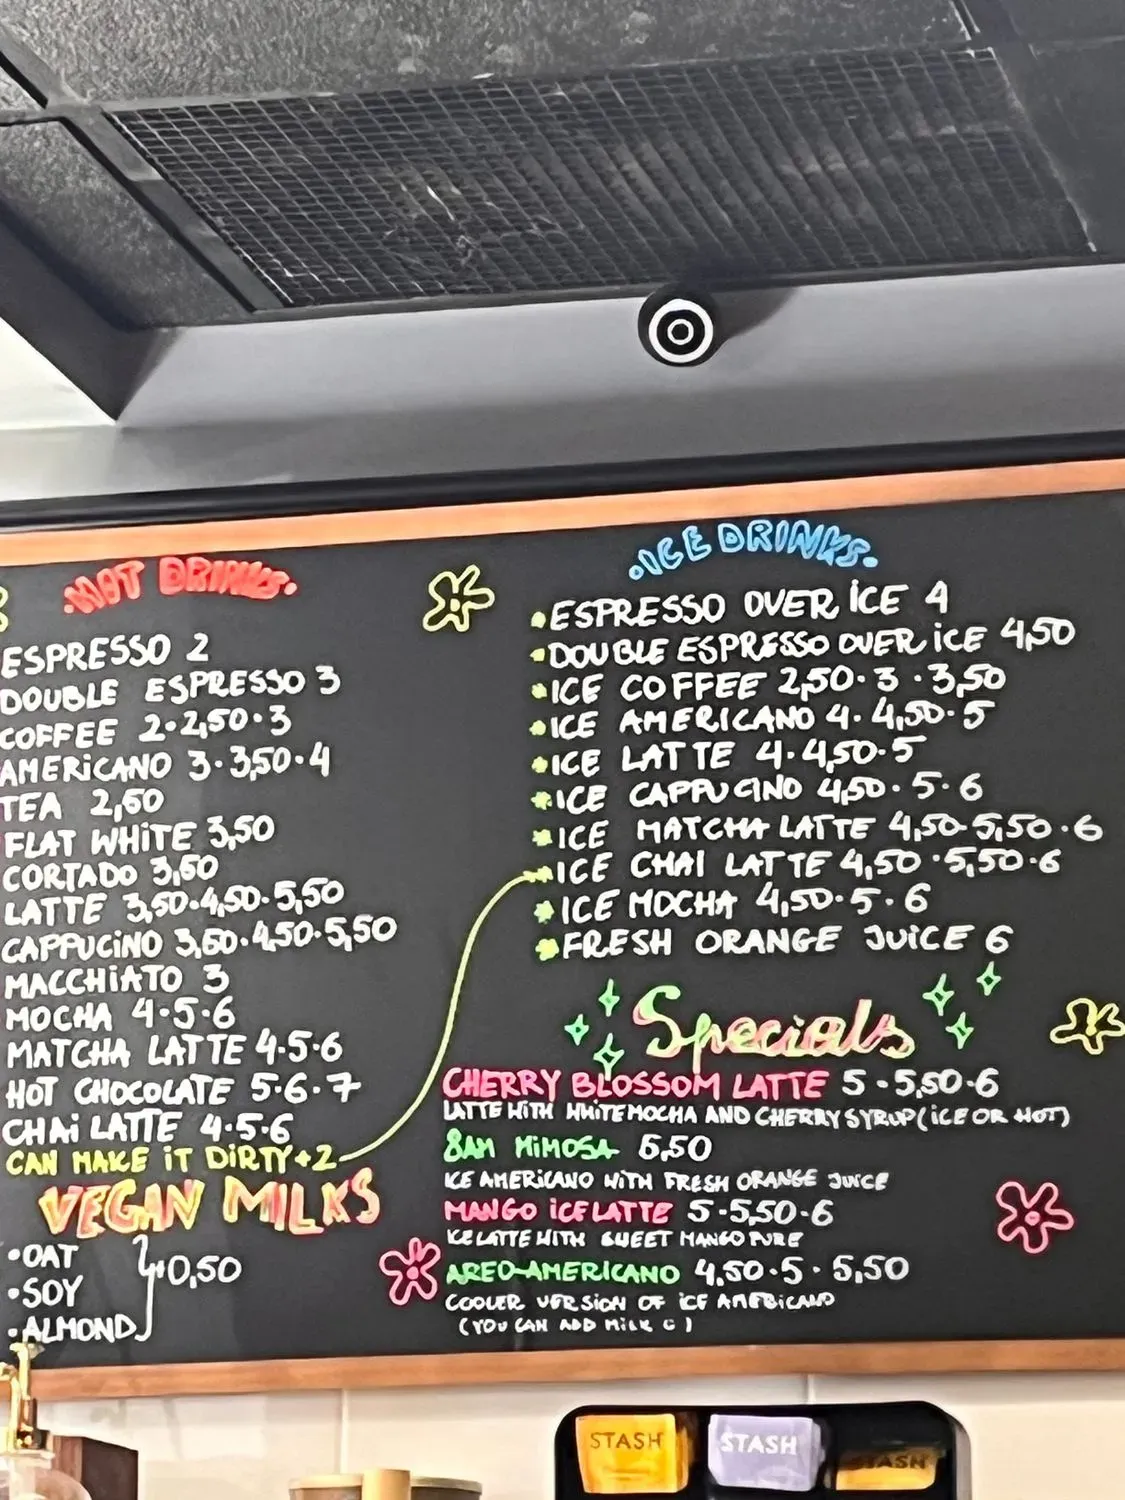 HOT DRINKS
ESPRESSO 2
DOUBLE ESPRESSO 3
COFFEE 2·2,50·3
AMERICANO 3·3,50·4
TEA 2,50
FLAT WHITE 3,50
CORTADO 3,50
LATTE 3,50·4,50·5,50
CAPPUCINO 3,50·4,50·5,50
MACCHIATO 3
MOCHA 4·5·6
MATCHA LATTE 4·5·6
HOT CHOCOLATE 5·6·7
CHAI LATTE 4·5·6
CAN MAKE IT DIRTY+2
VEGAN MILKS
•OAT
•SOY
•ALMOND
+0,50
•ICE DRINKS•
ESPRESSO OVER ICE 4
DOUBLE ESPRESSO OVER ICE 4,50
ICE COFFEE 2,50·3·3,50
ICE AMERICANO 4·4,50·5
ICE LATTE 4·4,50·5
ICE CAPPUCINO 4,50·5·6
ICE MATCHA LATTE 4,50·5,50·6
ICE CHAI LATTE 4,50·5,50·6
ICE MOCHA 4,50·5·6
FRESH ORANGE JUICE 6
Specials
CHERRY BLOSSOM LATTE 5·5,50·6
LATTE WITH WHITE MOCHA AND CHERRY SYRUP (ICE OR HOT)
8AM MIMOSA 5,50
ICE AMERICANO WITH FRESH ORANGE JUICE
MANGO ICE LATTE 5·5,50·6
ICE LATTE WITH SWEET MANGO PURE
AREO-AMERICANO 4,50·5·5,50
COOLER VERSION OF ICE AMERICANO
(YOU CAN ADD MILK)
STASH
STASH
STASH